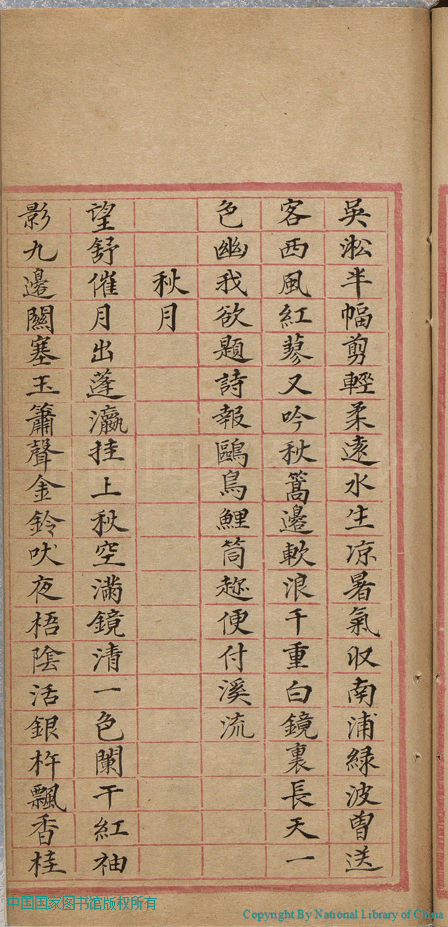 吳淞半幅剪輕柔遠水生凉暑氣收南浦緑波曽送
客西風紅蓼又吟秋篙邊軟浪千重白鏡裏長天一
色幽我欲題詩報鷗鳥鯉筒趂便付溪流
秋月
望舒催月出蓬瀛挂上秋空滿鏡清一色闌干紅袖
影九邊關塞玉簫聲金鈴吠夜梧陰活銀杵飄香桂
中国国家图书馆版权所有
Copyright By National Library of China